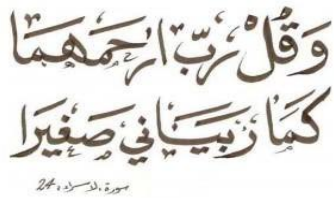 وَقُلْ رَبِّ ارْحَمْهُمَا
كَمَا رَبَّيَانِي صَغِيرًا
سورة الاسراء 24